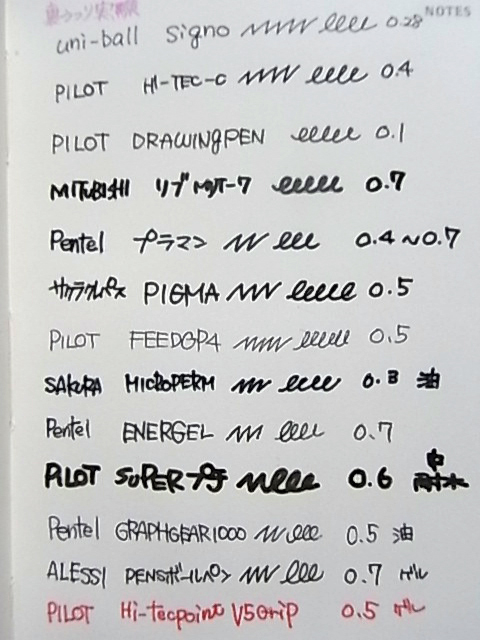 NOTES
uni-ball signo 0.28
PILOT HI-TEC-C 0.4
PILOT DRAWINGPEN 0.1
MITUBISHI リブ 0.7
Pentel プラマン 0.4~0.7
サクラクレパス PIGMA 0.5
PILOT FEEDGP4 0.5
SAKURA MICROPERM 0.3 油
Pentel ENERGEL 0.7
PILOT SUPERプチ 0.6 中 耐水
Pentel GRAPHGEAR1000 0.5 油
ALESSI PENSボールペン 0.7 ゲル
PILOT Hi-tecpoint V5Grip 0.5 ゲル